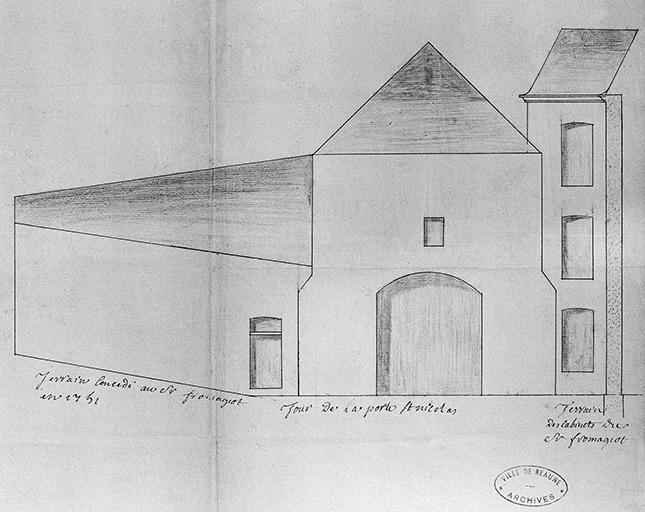 Terrain Concédé au Sr fromageot
en 17
Tour De la porte St nicolas
Terrain
Des Cabinets Du
Sr fromageot
VILLE DE BEAUNE
ARCHIVES